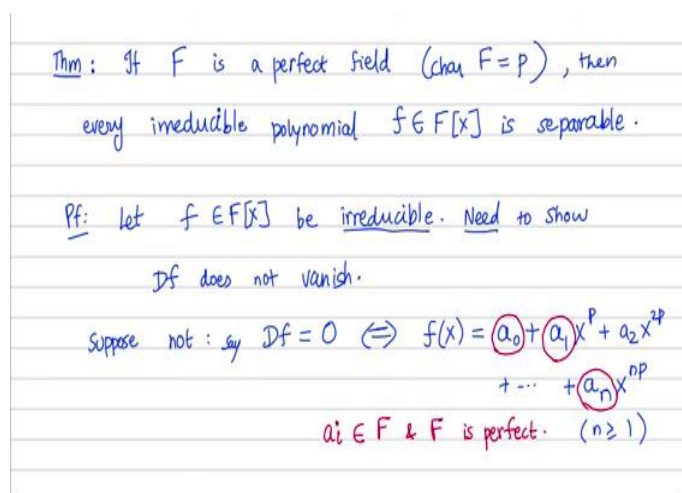 Thm : If F is a perfect field (char F = p), then
every irreducible polynomial f ∈ F[x] is separable.
Pf: Let f ∈ F[x] be irreducible. Need to show
Df does not vanish.
Suppose not : say Df = 0 ⟺ f(x) = a₀ + a₁x^p + a₂x^2p
+ ... + aₙx^np
ai ∈ F & F is perfect. (n ≥ 1)